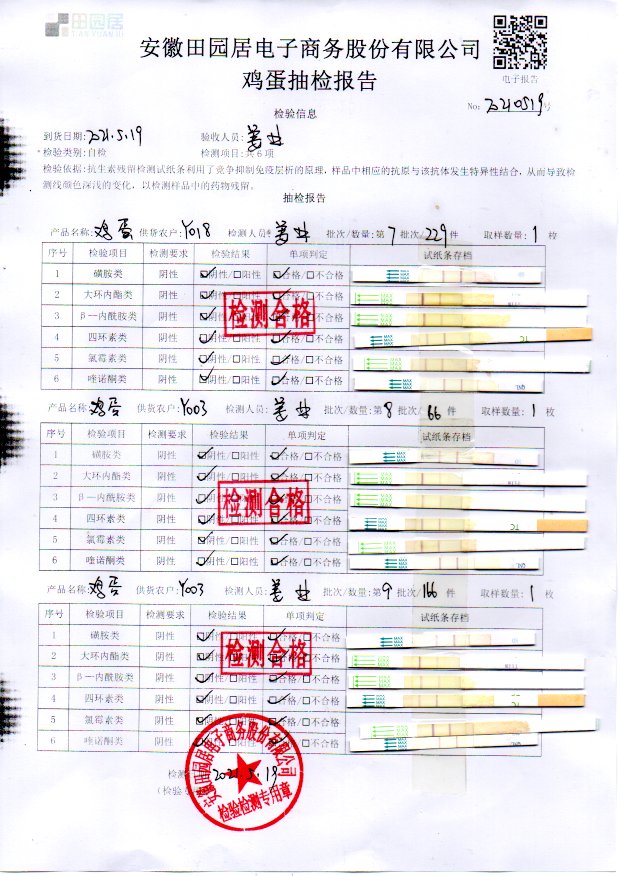 田园居
TIANYUANJU
安徽田园居电子商务股份有限公司
鸡蛋抽检报告
电子报告
No: 20210519号
检验信息
到货日期: 2021.5.19 验收人员:
*检验类别: 自检 检测项目: 共6项
检验依据: 抗生素残留检测试纸条利用了竞争抑制免疫层析的原理, 样品中相应的抗原与该抗体发生特异性结合, 从而导致检
测线颜色深浅的变化, 以检测样品中的药物残留。
抽检报告
产品名称: 鸡蛋 供货农户: Y018 检测人员: 批次/数量: 第7批次/229件 取样数量: 1枚
序号 检验项目 检测要求 检验结果 单项判定 试纸条存档
1 磺胺类 阴性 ☑阴性/□阳性 ☑合格/□不合格
2 大环内酯类 阴性 ☑阴性/□阳性 ☑合格/□不合格
3 β—内酰胺类 阴性 ☑阴性/□阳性 ☑合格/□不合格
4 四环素类 阴性 ☑阴性/□阳性 ☑合格/□不合格
5 氯霉素类 阴性 ☑阴性/□阳性 ☑合格/□不合格
6 喹诺酮类 阴性 ☑阴性/□阳性 ☑合格/□不合格
检测合格
产品名称: 鸡蛋 供货农户: Y003 检测人员: 批次/数量: 第8批次/66件 取样数量: 1枚
序号 检验项目 检测要求 检验结果 单项判定 试纸条存档
1 磺胺类 阴性 ☑阴性/□阳性 ☑合格/□不合格
2 大环内酯类 阴性 ☑阴性/□阳性 ☑合格/□不合格
3 β—内酰胺类 阴性 ☑阴性/□阳性 ☑合格/□不合格
4 四环素类 阴性 ☑阴性/□阳性 ☑合格/□不合格
5 氯霉素类 阴性 ☑阴性/□阳性 ☑合格/□不合格
6 喹诺酮类 阴性 ☑阴性/□阳性 ☑合格/□不合格
检测合格
产品名称: 鸡蛋 供货农户: Y003 检测人员: 批次/数量: 第9批次/166件 取样数量: 1枚
序号 检验项目 检测要求 检验结果 单项判定 试纸条存档
1 磺胺类 阴性 ☑阴性/□阳性 ☑合格/□不合格
2 大环内酯类 阴性 ☑阴性/□阳性 ☑合格/□不合格
3 β—内酰胺类 阴性 ☑阴性/□阳性 ☑合格/□不合格
4 四环素类 阴性 ☑阴性/□阳性 ☑合格/□不合格
5 氯霉素类 阴性 ☑阴性/□阳性 ☑合格/□不合格
6 喹诺酮类 阴性 ☑阴性/□阳性 ☑合格/□不合格
检测合格
2021.5.19
安徽田园居电子商务股份有限公司
检验检测专用章